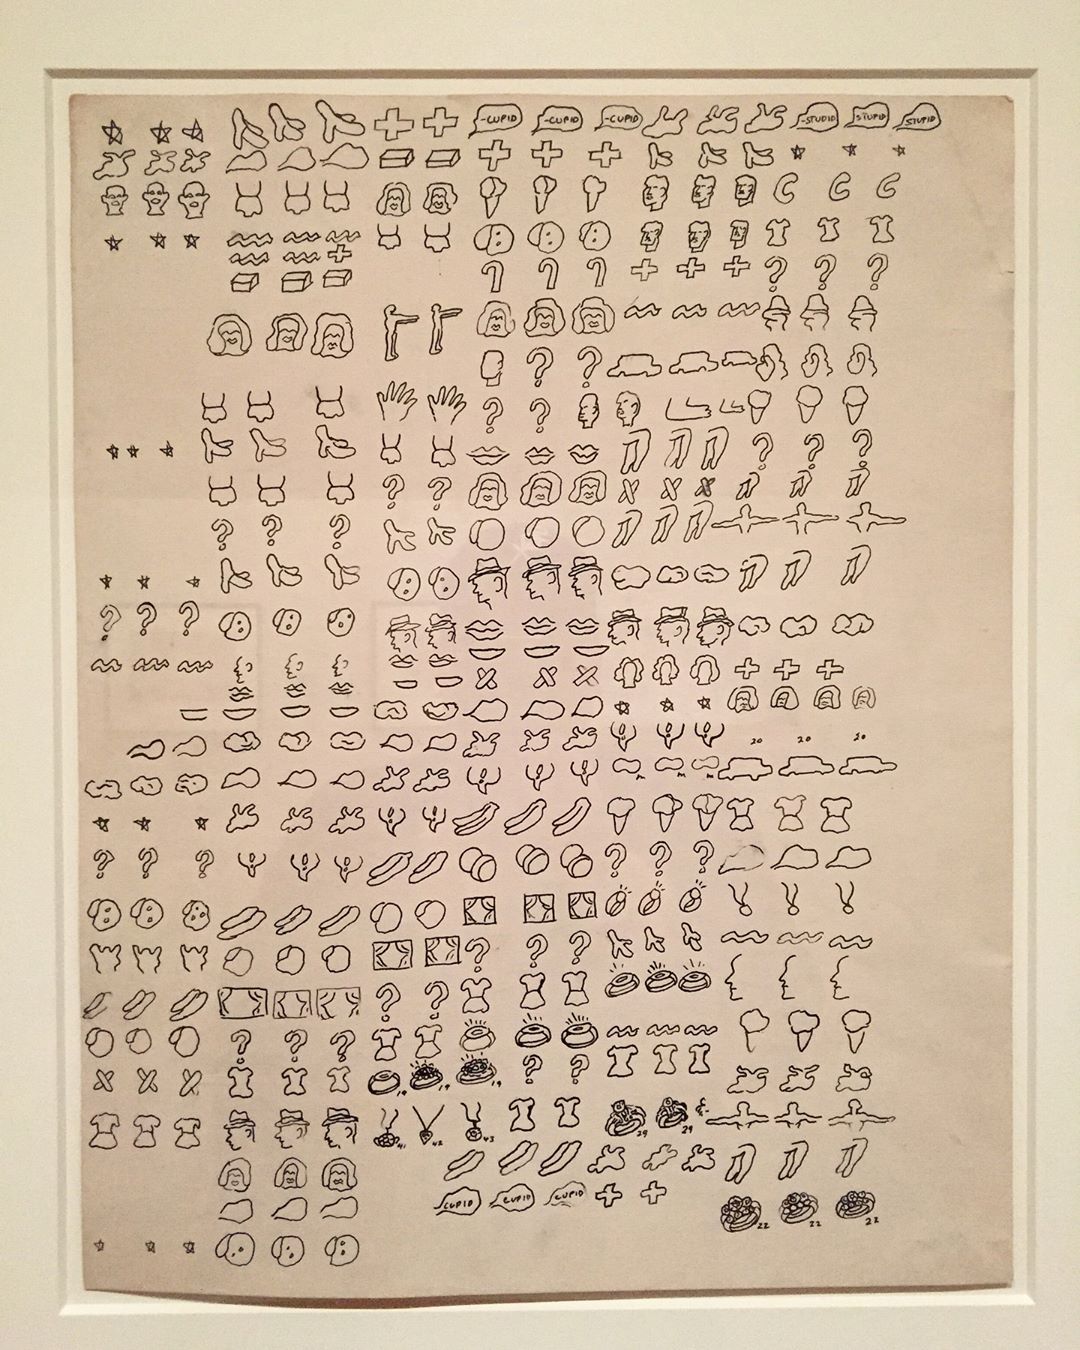 -CUPID -CUPID -CUPID -STUPID STUPID STUPID
20 20 20
19 19
41 42 43 29 29
CUPID CUPID CUPID
22 22 22